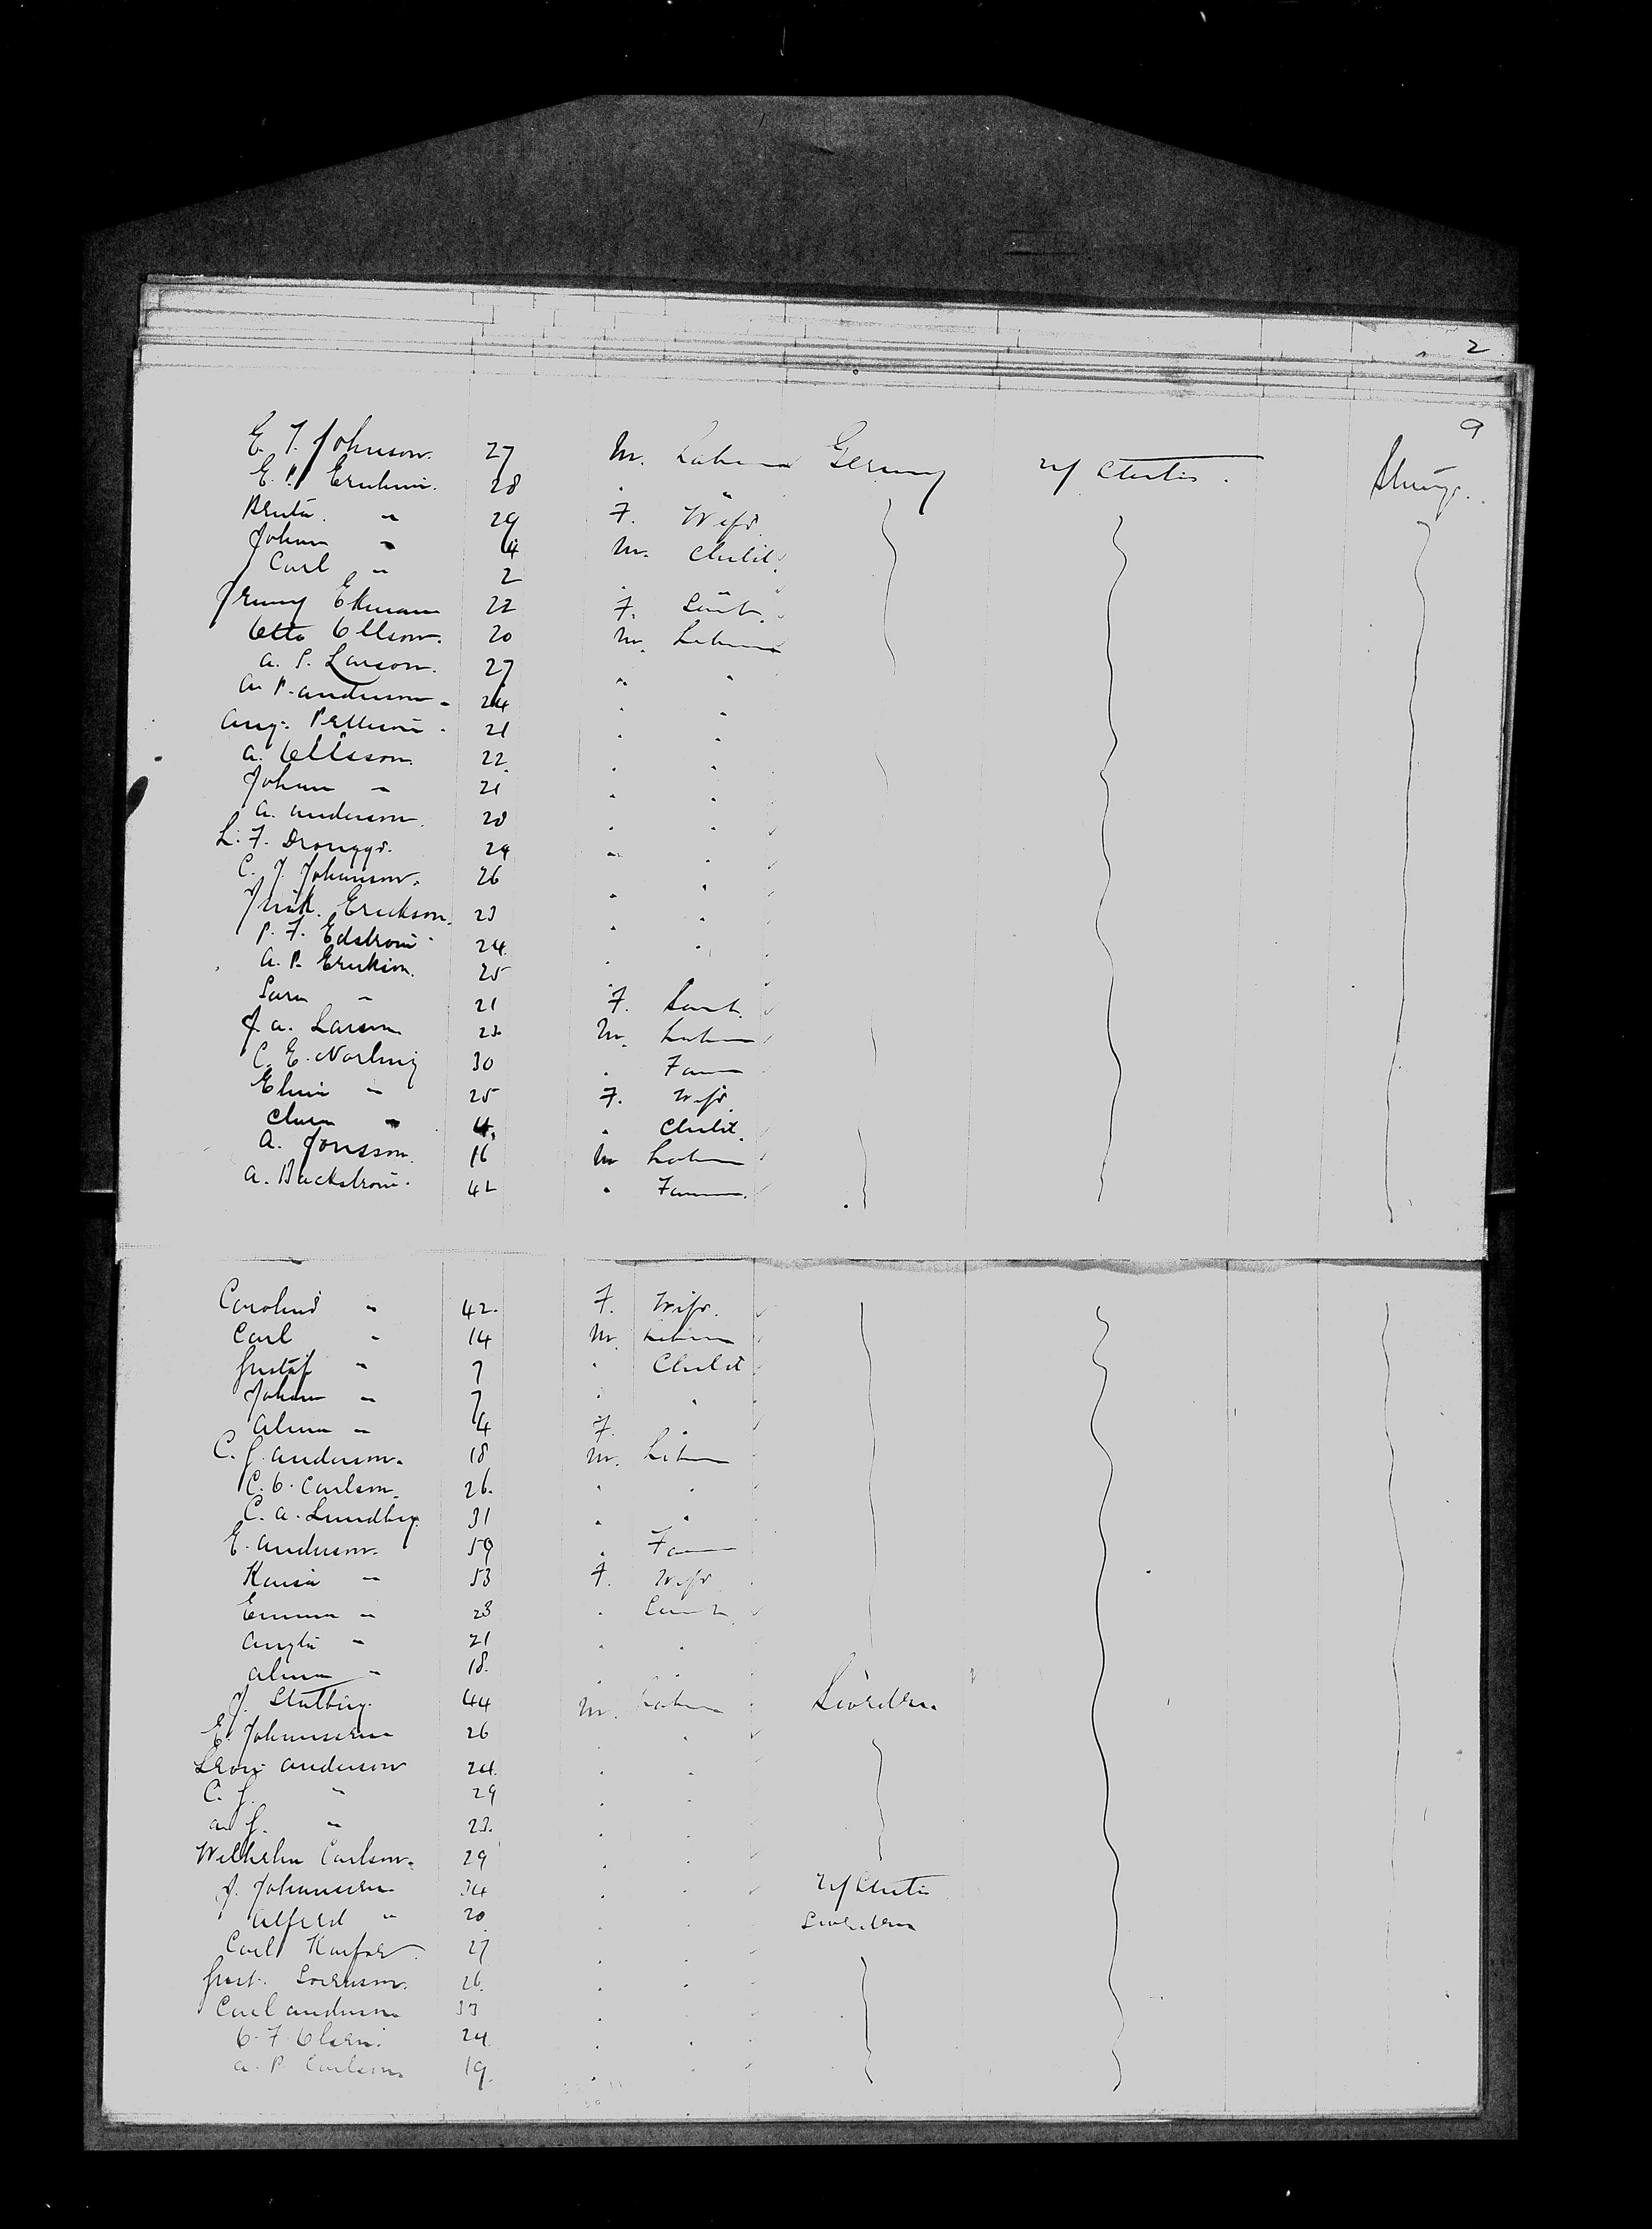 2
9
E. J. Johnson. 27 M. Labour Germy U/ States. Steerage.
E. P. Erickson. 28 " "
" 29 F. Wife
Johan " 4 M. Child
Carl " 2 " "
Jenny Ekman 22 F. Servt.
Otto Ollson. 20 M. Labour
A. P. Larson. 27 " "
A. P. Anderson 24 " "
Aug. Petterson 21 " "
A. Ollsson. 22 " "
Johan " 21 " "
A. Anderson. 20 " "
L. F. 29 " "
C. J. Johanson. 26 " "
Erickson. 23 " "
P. F. Edstrom 24 " "
A. P. Erickson. 25 "
Sara " 21 F. Servt.
J. A. Larson 22 M. Labour
C. E. Norling 30 " Farm
" 25 F. Wife
Clara " 4. " Child.
A. Jonsson. 16 M Labour
A. Backstrom. 42 " Farm
Caroline " 42. F. Wife.
Carl " 14 M. Labour
Gustaf " 7 " Child
Johan " 7 " "
Alma " 4 F. "
C. J. Anderson. 18 M. Labour
C. O. Carlson. 26. " "
C. A. Lundberg. 31 " "
E. Anderson. 59 " Farm
" 53 F. Wife
Emma " 23 " Servt
" 21 " "
Alma " 18. " "
J. 44 M. Labour Sweden.
E. Johansen 26 " "
Anderson 24. " "
C. J. " 29 " "
A. J. " 23. " "
Wilhelm Carlson. 29 " "
J. Johansen 34 " " U/ States
Alfred " 20 " " Sweden
Carl 27 " "
Gust. 26. " "
Carl Anderson 33 " "
O. F. Olsen. 24 " "
A. P. Carlson. 19. " "